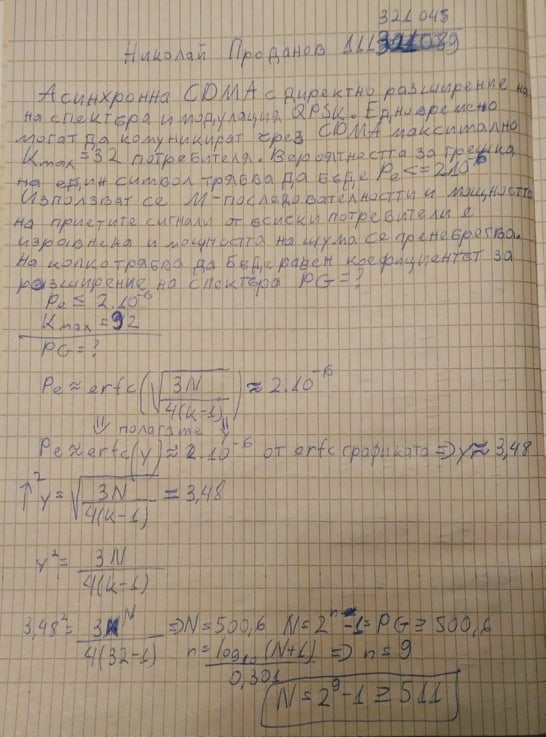 321045
Николай Проданов 111321089
Асинхронна CDMA с директно разширение на
на спектъра и модулация QPSK. Едновремено
могат да комуникират чрез CDMA максимално
Kmax=32 потребителя. Вероятността за грешка
на един символ трябва да бъде Pe<=2.10⁻⁶
Използват се М-последователности и мощността
на приетите сигнали от всиски потребители е
изравнена и мощността на шума се пренебрегва.
На колко трябва да бъде равен коефициентът за
разширение на спектъра PG=?
Pe ≤ 2.10⁻⁶
Kmax = 32
PG=?
Pe ≈ erfc(√(3N/4(k-1))) ≈ 2.10⁻⁶
⇓ полагаме ⇓
Pe ≈ erfc(y) ≈ 2.10⁻⁶ от erfc графиката => y ≈ 3,48
↑² y = √(3N/4(k-1)) = 3,48
y² = 3N/4(k-1)
3,48² = 3N/4(32-1) => N = 500,6 N = 2ⁿ-1 = PG ≥ 500,6
n = log₁₀(N+1)/0,301 => n = 9
N = 2⁹-1 ≥ 511